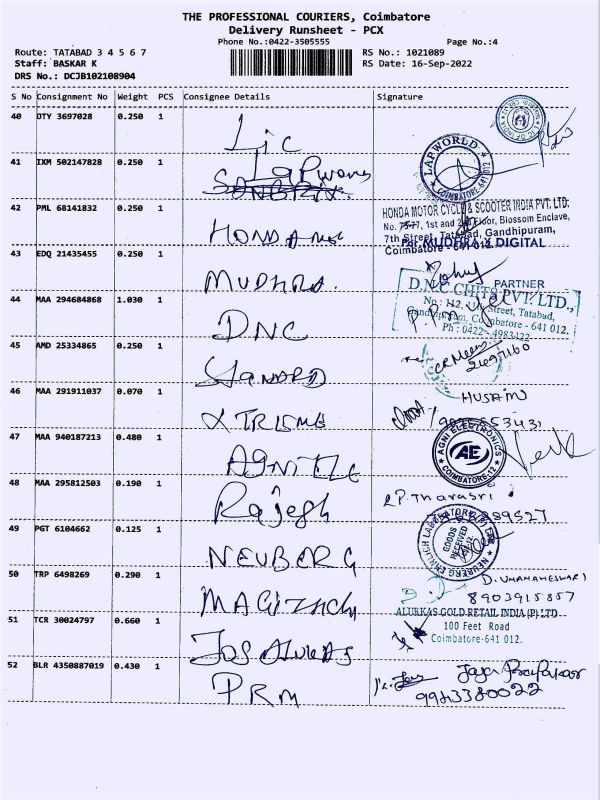 THE PROFESSIONAL COURIERS, Coimbatore
Delivery Runsheet - PCX
Phone No.:0422-3505555
Page No.:4
Route: TATABAD 3 4 5 6 7
RS No.: 1021089
Staff: BASKAR K
RS Date: 16-Sep-2022
DRS No.: DCJB102108904
S No Consignment No Weight PCS Consignee Details Signature
40 DTY 3697028 0.250 1 Lic
41 IXM 502147828 0.250 1 Lapworld
LAPWORLD
COIMBATORE-641 012
42 PML 68141832 0.250 1 HONDA
HONDA MOTOR CYCLE & SCOOTER INDIA PVT. LTD.
1st and 2nd Floor, Blossom Enclave,
7th Street, Tatabad, Gandhipuram,
Coimbatore - 641 012.
For MUDHRA DIGITAL
43 EDQ 21435455 0.250 1 MUDHRA.
PARTNER
44 MAA 294684868 1.030 1 DNC
D.N.C CHITS PVT. LTD.,
No.: 112, Street, Tatabad,
Gandhipuram, Coimbatore - 641 012.
Ph : 0422 - 4983122
45 AMD 25334865 0.250 1
46 MAA 291911037 0.070 1 XTREME
HUSAIN
47 MAA 940187213 0.480 1 AGNI ELE
AGNI ELECTRONICS
AE
COIMBATORE-12
48 MAA 295812503 0.190 1 Rajesh
P. Tharasri
49 PGT 6104662 0.125 1 NEUBERG
NEUBERG EHRLICH LABORATORY
GOODS
RECEIVED
50 TRP 6498269 0.290 1
D. UMAMAHESWARI
8903915857
51 TCR 30024797 0.660 1 Jos Alukas
ALUKKAS GOLD RETAIL INDIA (P) LTD
100 Feet Road
Coimbatore-641 012.
52 BLR 4350887019 0.430 1 PRM
Jaya Prabakar
9943380022